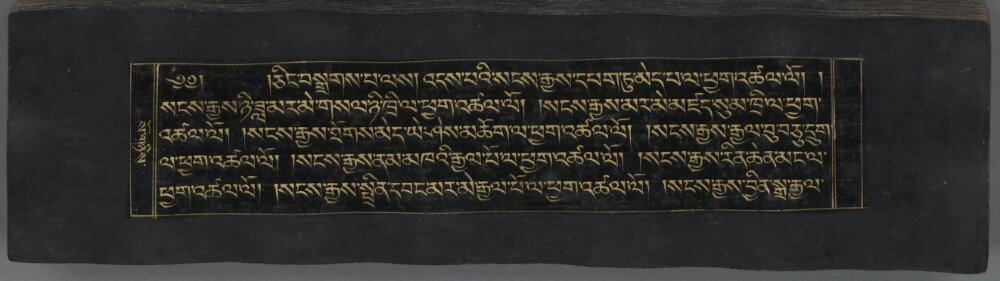 ༄༅། །རིང་བསྒྲགས་པ་ལས། འདས་པའི་སངས་རྒྱས་དཔག་ཏུ་མེད་པ་ལ་ཕྱག་འཚལ་ལོ། །
སངས་རྒྱས་ཉི་ཟླ་མར་མེ་གསལ་ཉི་ཁྲི་ལ་ཕྱག་འཚལ་ལོ། །སངས་རྒྱས་མར་མེ་མཛད་སུམ་ཁྲི་ལ་ཕྱག་
འཚལ་ལོ། །སངས་རྒྱས་ཐོགས་མ་ད་ཡེ་ཤེས་མཆོག་ལ་ཕྱག་འཚལ་ལོ། །སངས་རྒྱས་རྒྱལ་བུ་བཅུ་དྲུག་
ལ་ཕྱག་འཚལ་ལོ། །སངས་རྒྱས་ནམ་མཁའི་རྒྱལ་པོ་ལ་ཕྱག་འཚལ་ལོ། །སངས་རྒྱས་རིན་ཆེན་མང་ལ་
ཕྱག་འཚལ་ལོ། །སངས་རྒྱས་སྤྲིན་དབང་མར་མེ་རྒྱལ་པོ་ལ་ཕྱག་འཚལ་ལོ། །སངས་རྒྱས་སྤྲིན་སྒྲ་རྒྱལ་